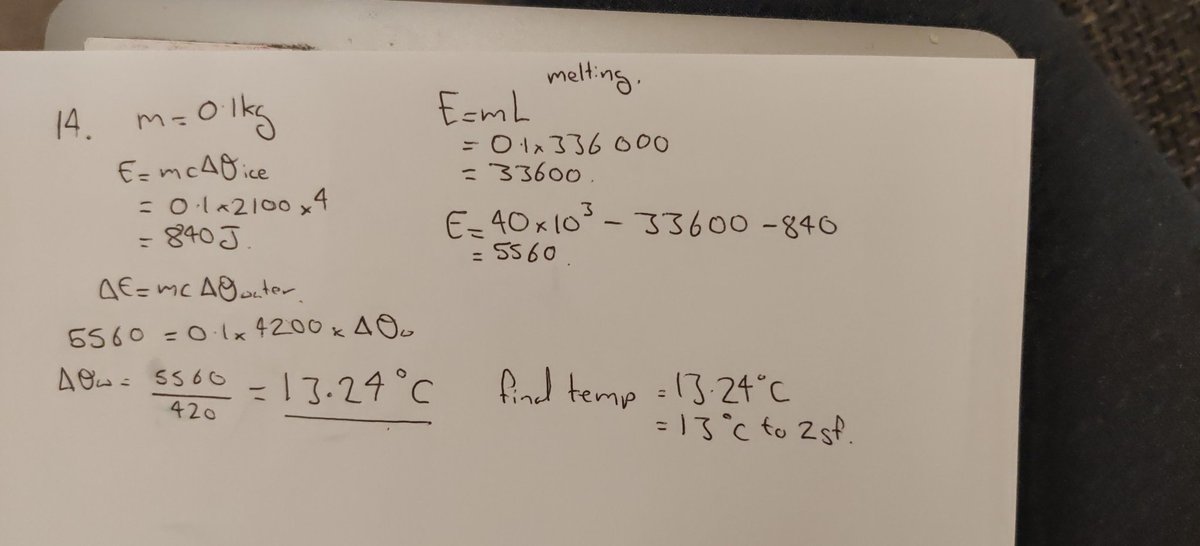 14. m = 0.1kg
E = mcΔθice
= 0.1 × 2100 × 4
= 840J.
melting.
E = mL
= 0.1 × 336 000
= 33600.
E = 40 × 10³ - 33600 - 840
= 5560.
ΔE = mcΔθwater.
5560 = 0.1 × 4200 × Δθw
Δθw = 5560/420 = 13.24°C
find temp = 13.24°C
= 13°C to 2sf.